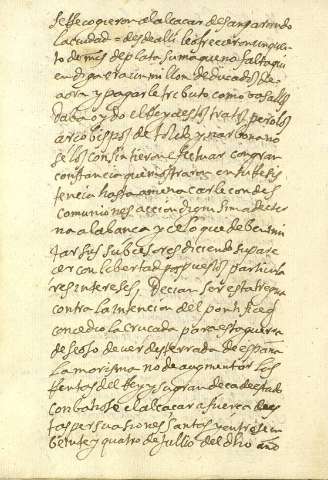 se Recogieron al alcaçar desanparando
la ciudad = desde alli les ofrecieron un quen
to de mrs de plata suma que no falta qui
en diga era un millon de ducados de
aora y pagarle tributo como vasallos
daba oydo el Rey a estos tratos pero los
arcobispos de toledo y narbona no
se los consintieron efectuar con gran
constancia que mostraron en su Resis
tencia hasta amenaçarle con des
comuniones accion dignisima de eter
na alabança y es lo que deben imi
tar sus subcesores diciendo su pare
cer con libertad pospuestos particula
res intereses, Decian ser esta tregua
contra la intencion del pontifice q
concedio la cruçada para esta guerra
deseoso de ver desterrada de españa
la morisma no de augmentar las
Rentas del Rey y su grandeça de estado
conbatiose el alcaçar a fuerça de es
tas persuasiones santas y entrese en
beinte y quatro de Jullio del dho año